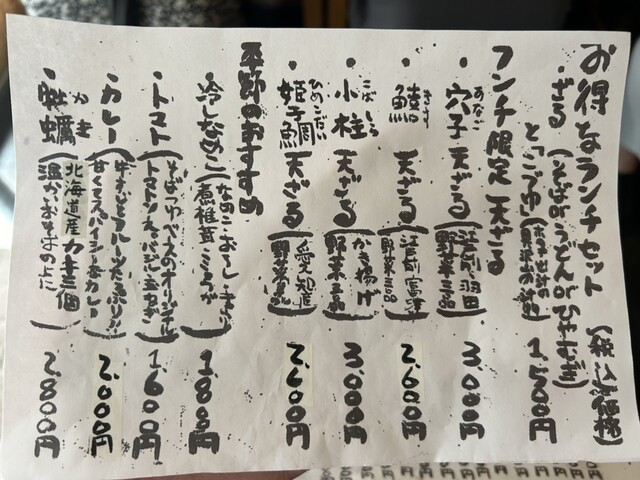 お得なランチセット (税込価格)
ざる (そばorうどんorひやむぎ)
と「こづゆ」 1,500円
ランチ限定 天ざる
・穴子 天ざる (江戸前、羽田 野菜三品) 3,000円
あなご
・鱚 天ざる (江戸前、富津 野菜三品) 2,600円
きす
・小柱 天ざる (かき揚げ 野菜三品) 3,000円
こばしら
・姫子鯛 天ざる (愛知産 野菜三品) 2,600円
ひめこだい
季節のおすすめ
・冷しなめこ (なめこ・おろし 煮椎茸・みょうが) 1,800円
・トマト (そばつゆベースのオリジナル トマトソース・バジル・玉ねぎ) 1,600円
・カレー (牛すじとフルーツたっぷり!! 甘くてスパイシーなカレー) 2,000円
・牡蠣 (北海道産 カキ三個 温かいおそばの上に) 2,800円
かき